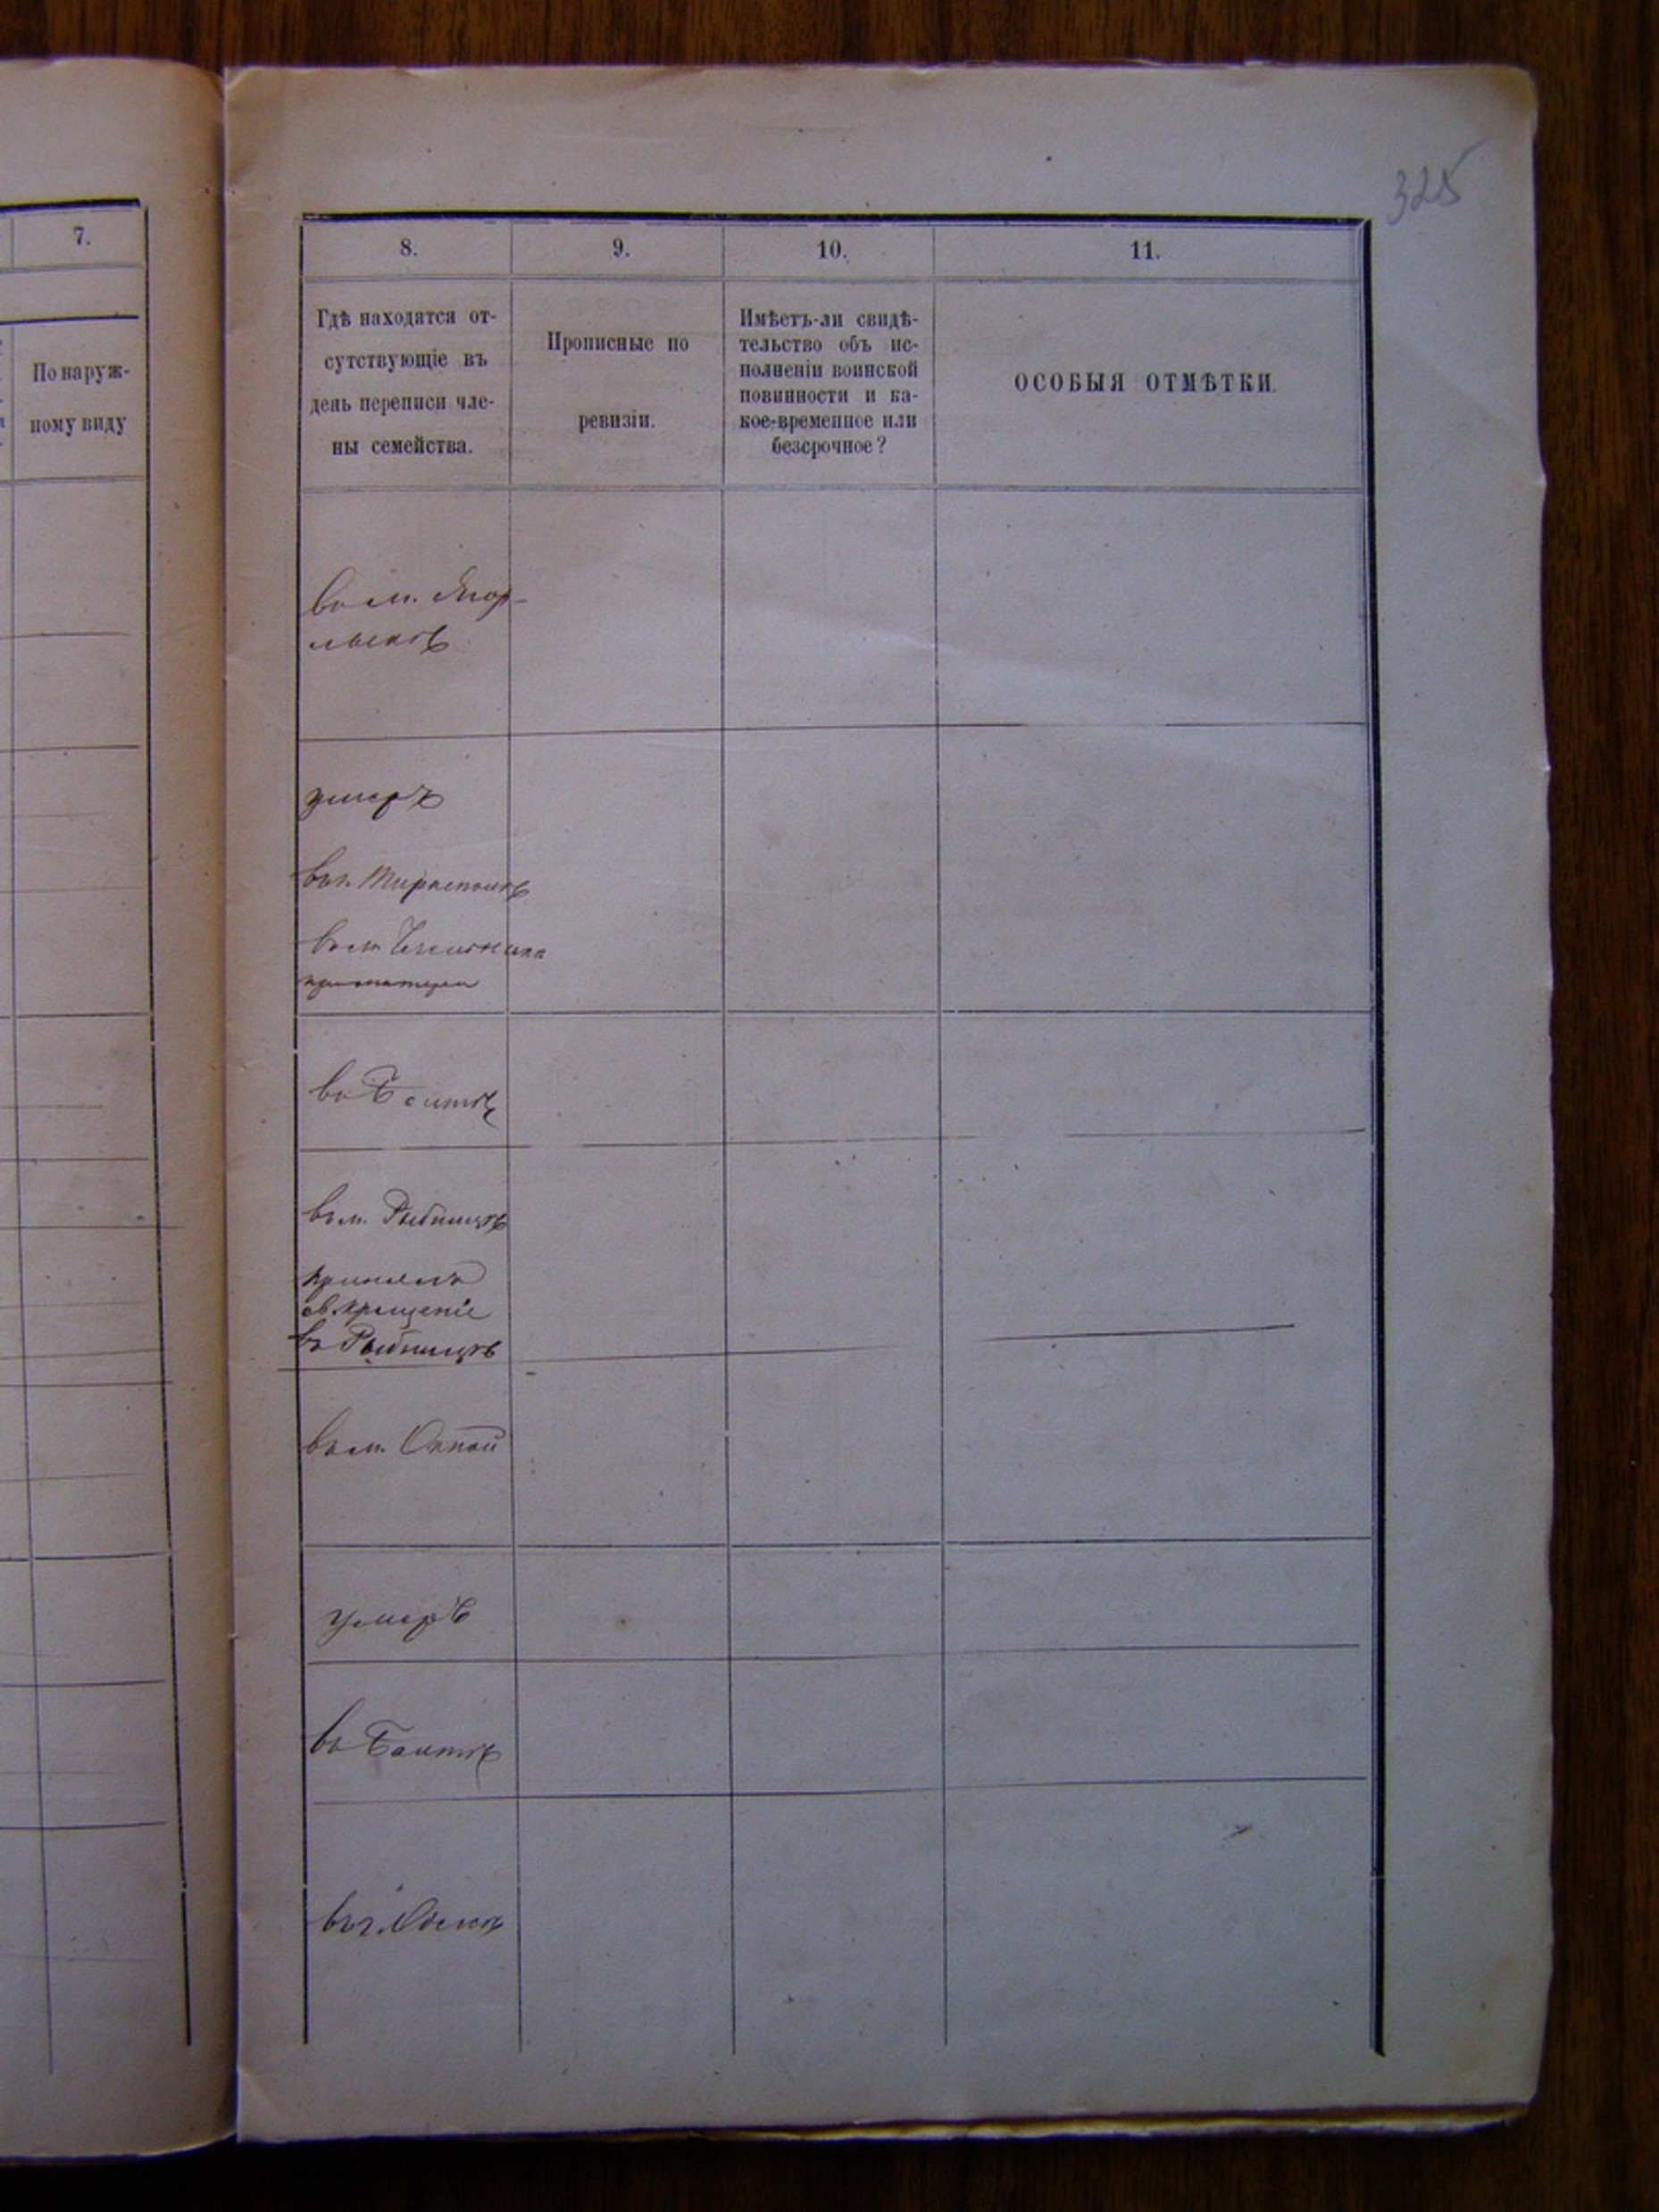 325
7.
По наруж-
ному виду
8.
9.
10.
11.
Гдѣ находятся от-
сутствующіе въ
день переписи чле-
ны семейства.
Прописные по
ревизіи.
Имѣетъ-ли свидѣ-
тельство объ ис-
полненіи воинской
повинности и ка-
кое-временное или
безсрочное?
ОСОБЫЯ ОТМѢТКИ.
въ м. Ягор-
лыкѣ
умеръ
въ г. Тирасполѣ
въ м.
въ Балтѣ
въ м. Рыбницѣ
принялъ
св. крещеніе
въ Рыбницѣ
въ м. Окнай
умеръ
въ Балтѣ
въ г. Одессѣ